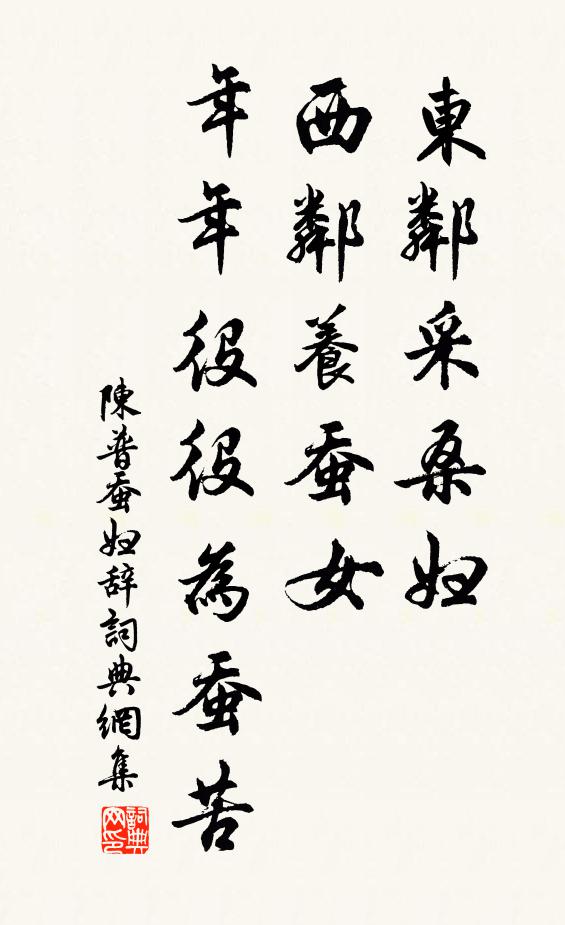 東鄰采桑婦
西鄰養蚕女
年年役役為蚕苦
陳普蚕妇辞詞典網集
詞典网印